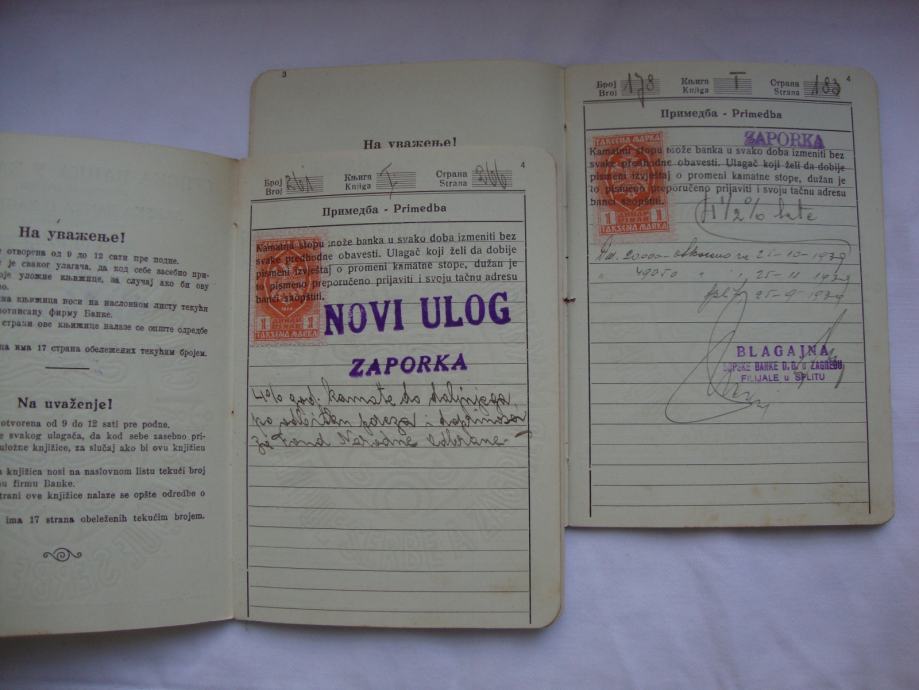 На уважење!
е отворена од 9 до 12 сати пре подне.
е је сваког улагача, да код себе засебно при-
оје уложне књижице, за случај ако би ову
во.
на књижица носи на насловном листу текући
отписану фирму Банке.
страни ове књижице налазе се опште одредбе
на има 17 страна обележених текућим бројем.
Na uvaženje!
otvorena od 9 do 12 sati pre podne.
e svakog ulagača, da kod sebe zasebno pri-
uložne knjižice, za slučaj ako bi ovu knjižicu
a knjižica nosi na naslovnom listu tekući broj
nu firmu Banke.
trani ove knjižice nalaze se opšte odredbe o
ima 17 strana obeleženih tekućim brojem.
3
На уважење!
4
Број Књига Страна
Broj 261 Knjiga I Strana 266
Примедба - Primedba
Kamatnu stopu može banka u svako doba izmeniti bez
svake predhodne obavesti. Ulagač koji želi da dobije
pismeni izvještaj o promeni kamatne stope, dužan je
to pismeno preporučeno prijaviti i svoju tačnu adresu
banci saopštiti.
1 ДИНАР DINAR 1
TAKSENA MARKA
NOVI ULOG
ZAPORKA
4% god. kamate do daljnjega,
po odbitku poreza i doprinosa
za Fond Narodne Odbrane
4
Број Књига Страна
Broj 178 Knjiga I Strana 183
Примедба - Primedba
ZAPORKA
ТАКСЕНА МАРКА
Kamatnu stopu može banka u svako doba izmeniti bez
svake predhodne obavesti. Ulagač koji želi da dobije
pismeni izvještaj o promeni kamatne stope, dužan je
to pismeno preporučeno prijaviti i svoju tačnu adresu
banci saopštiti.
1 ДИНАР DINAR 1
TAKSENA MARKA
1/2%
20000.- 25-10-1939
" 49050 " " 25-11-1939
25-9-1939
BLAGAJNA
SRPSKE BANKE D. D. u ZAGREBU
FILIJALE u SPLITU